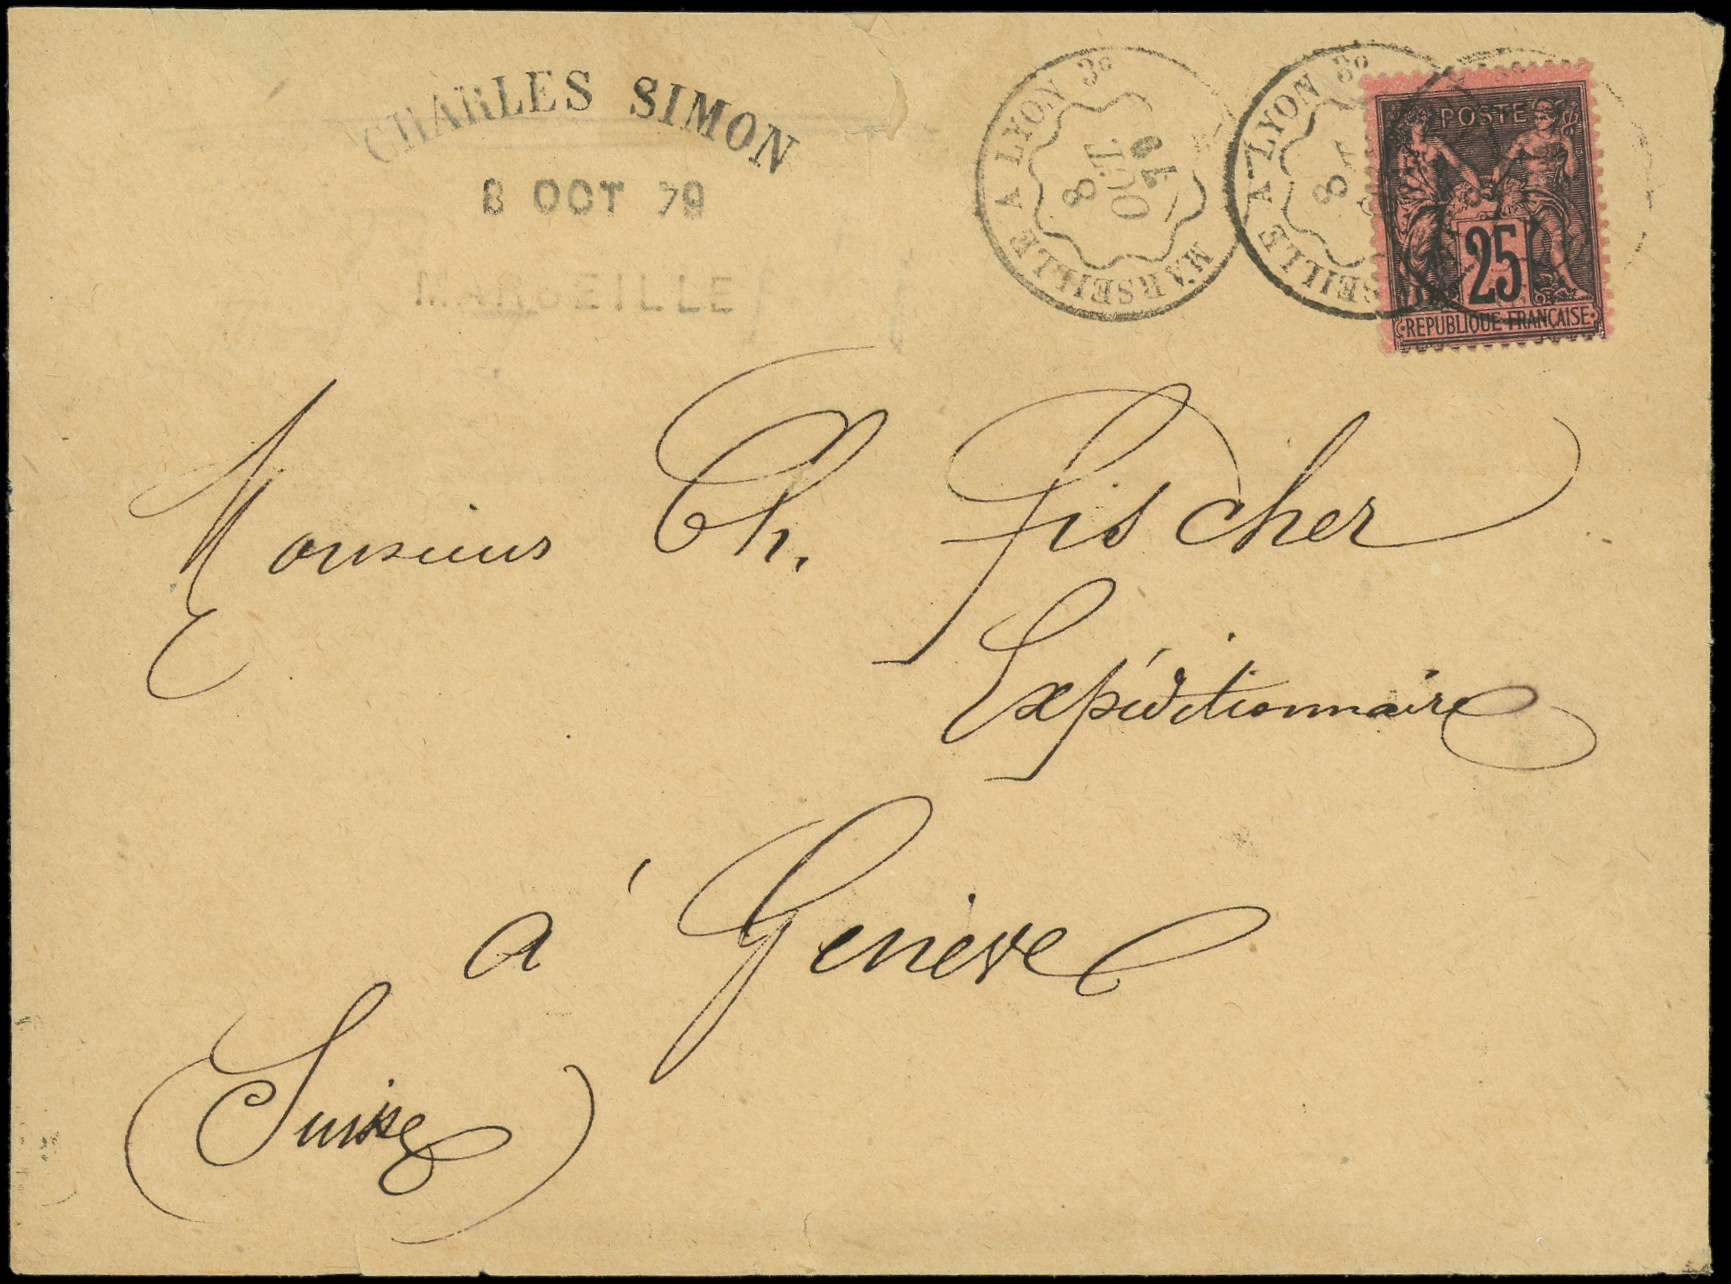 CHARLES SIMON
8 OCT 79
MARSEILLE
MARSEILLE A LYON 3o
8
OCT
79
MARSEILLE A LYON 3o
8
POSTE
25
REPUBLIQUE FRANÇAISE
Monsieur Ch. Fischer
Expéditionnaire
à Genève
(Suisse)